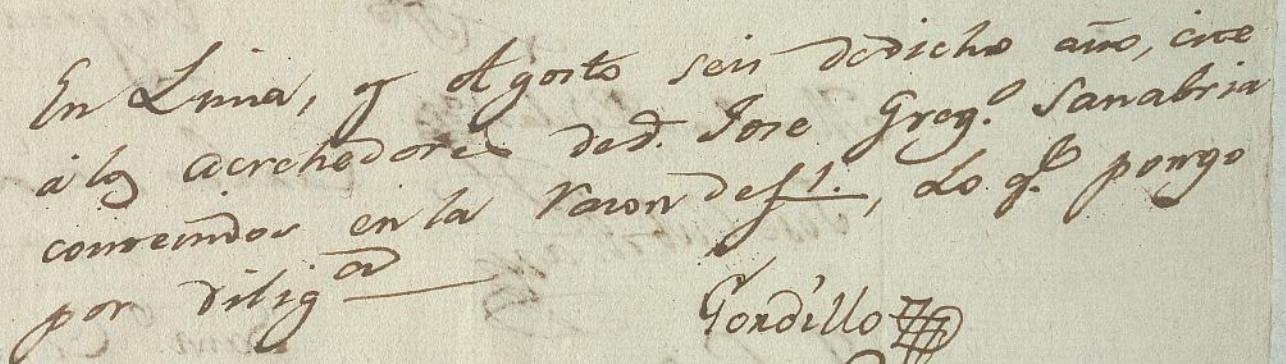 En Lima, y Agosto seis de dicho año, cite
á los acrehedores de d. Jose Greg.º Sanabria
contenidos en la razon de f 1., Lo q.e pongo
por dilig.a
Gordillo